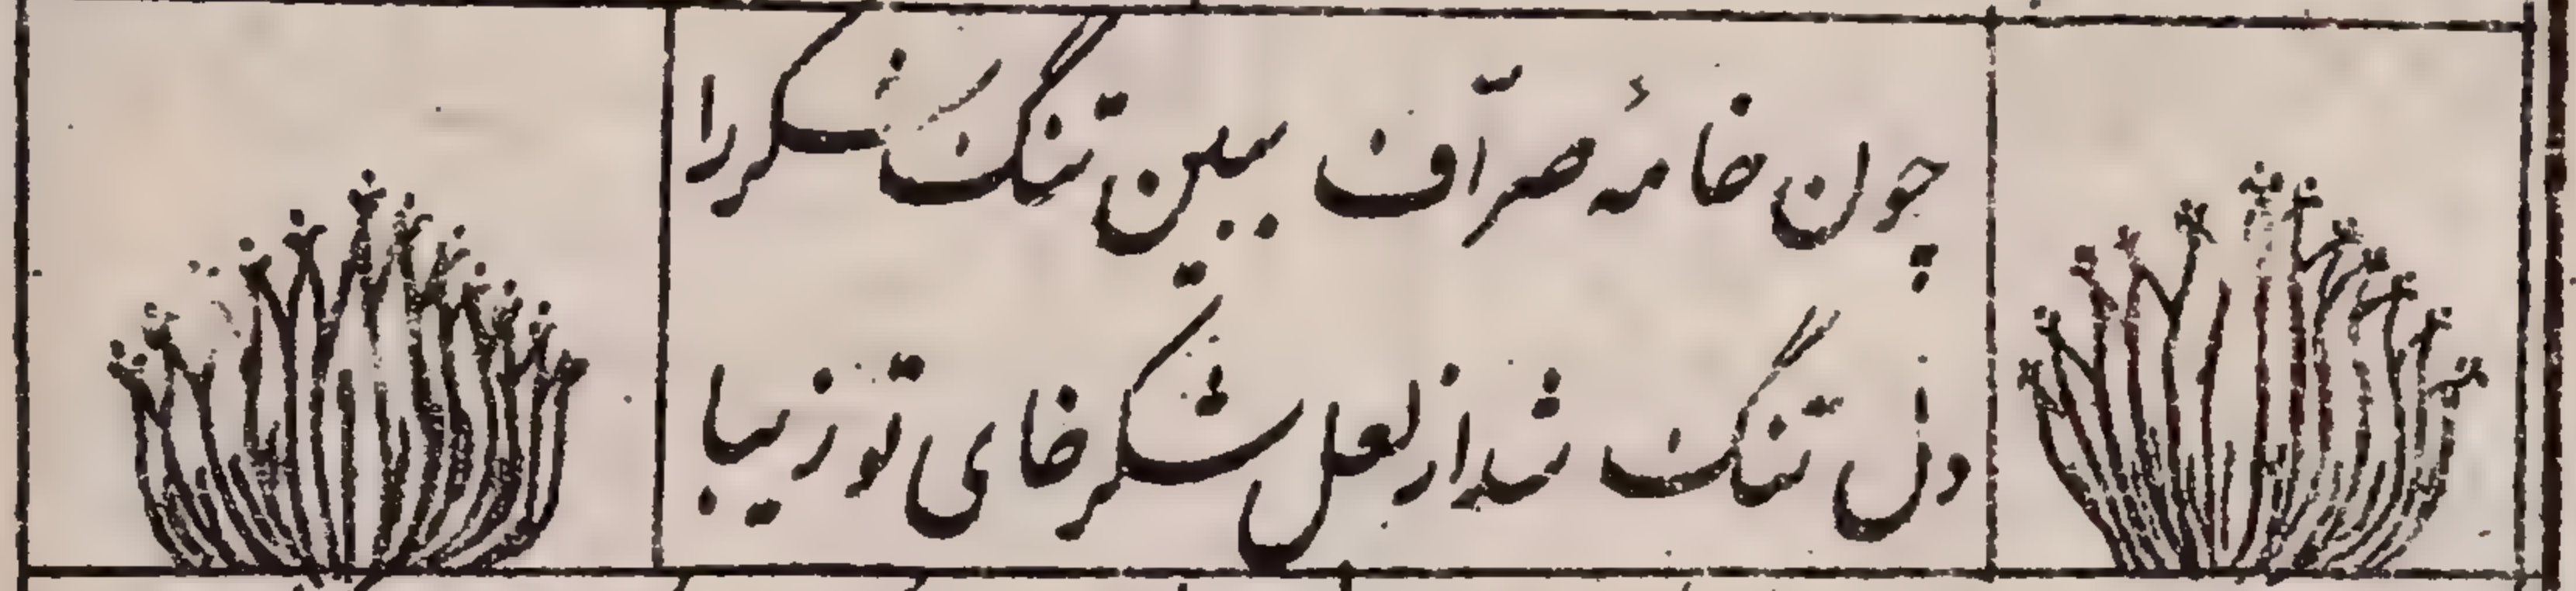 چون خامۂ صرّاف ببین تنگَ شکر را
دل تنگ شد از لعل شکر خای تو زیبا